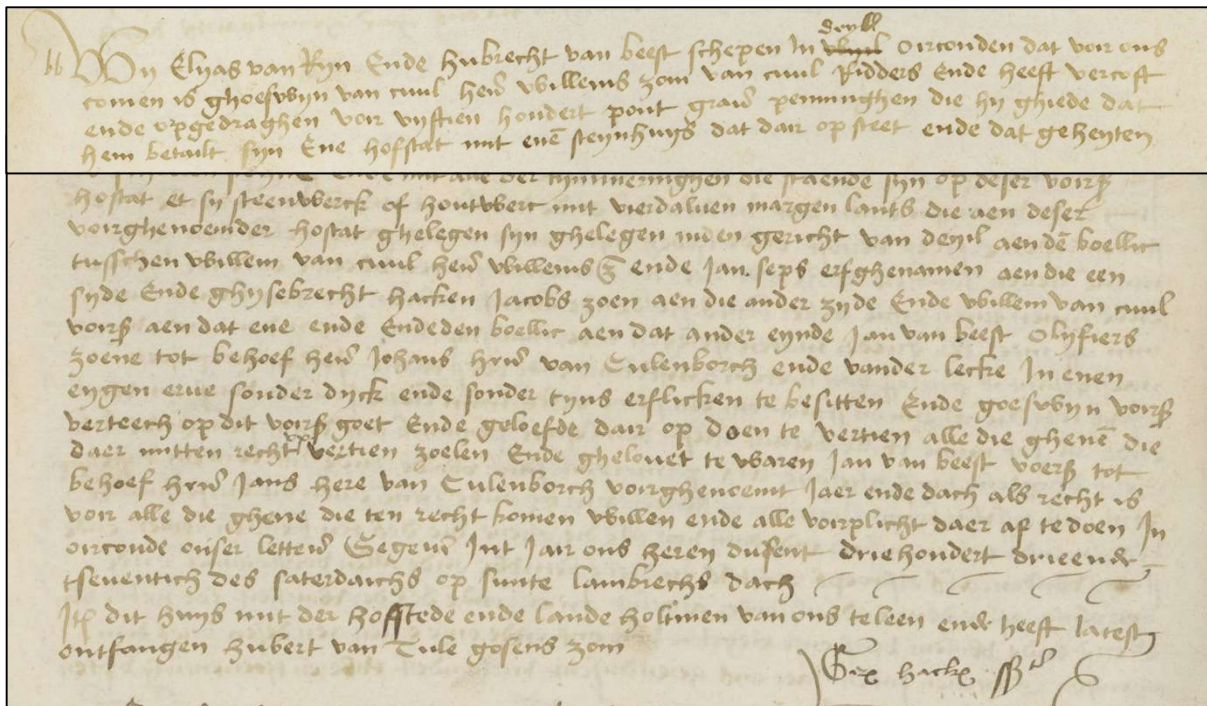 deyll
Wy Elyas van Ryn Ende hubrecht van beest schepen In oirconden dat voir ons
comen is ghoeswyn van cuul heren willems zoin van cuul Ridders Ende heeft vercoft
ende opgedraghen voir vyftien hondert pont graver penninghen die hy ghiede dat
hem betailt syn Ene hofstat mit enen steynhuys dat dair op steet ende dat geheyten
ende mit alle der tymmeringhen die staende syn op deser voirs
hofstat et sy steenwerck of houtwerc mit vierdalven margen lants die aen deser
voirghenoemder hofstat ghelegen syn ghelegen inden gericht van deyil aenden boellic
tusschen willem van cuul heren willems z ende Jan seps erfghenamen aen die een
syde Ende ghysebrecht hacken Jacobs zoen aen die ander zyde Ende willem van cuul
voirs aen dat ene ende Ende den boellic aen dat ander eynde Jan van beest Olyfiers
zoene tot behoef heren Johans heren van Culenborch ende vander lecke In enen
eygen erve sonder dyck ende sonder tyns erflicken te besitten Ende goeswyn voirs
verteech op dit voirs goet Ende geloefde dair op doen te vertien alle die ghenen die
daer mitten recht op vertien zoelen Ende ghelovet te waren Jan van beest voers tot
behoef heren Jans here van Culenborch voirghenoemt Jaer ende dach als recht is
voir alle die ghene die ten recht komen willen ende alle voirplicht daer af te doen In
oirconde onser letteren Gegeven Int Jair ons heren dusent driehondert drieende
tseventich des saterdaichs op sunte lambrechs dach
Itm dit huys mit der hoffstede ende lande holtmen van ons te leen ende heeft latest
ontfangen hubert van Tule gosens zoin